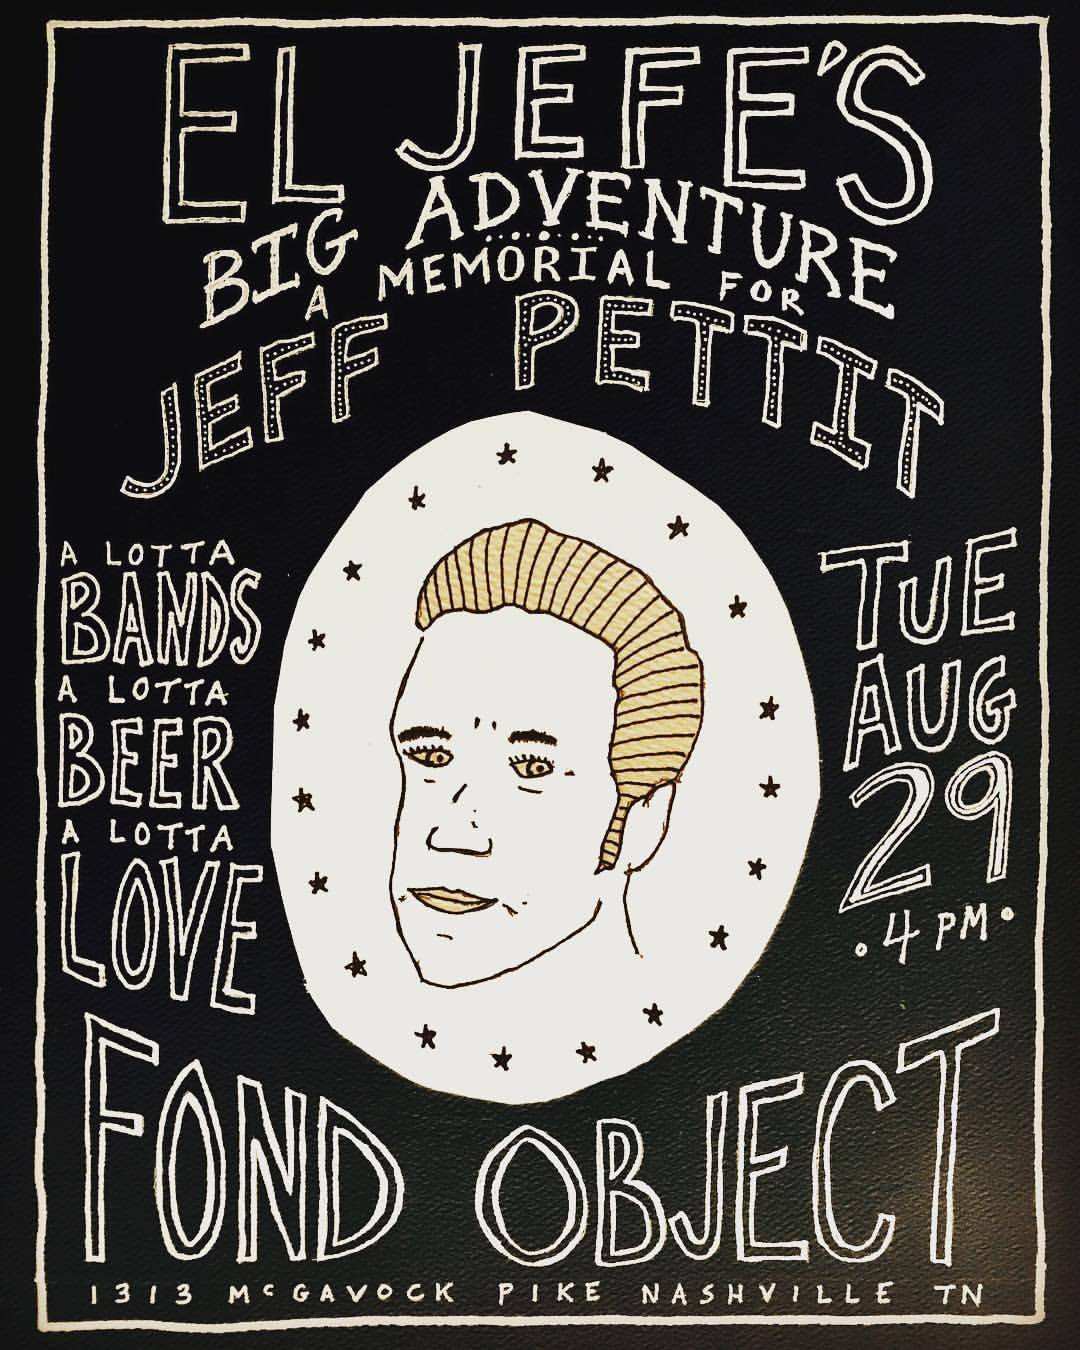 EL JEFE'S
BIG ADVENTURE
A MEMORIAL FOR
JEFF PETTIT
A LOTTA
BANDS
A LOTTA
BEER
A LOTTA
LOVE
TUE
AUG
29
.4 PM.
FOND OBJECT
1313 McGAVOCK PIKE NASHVILLE TN